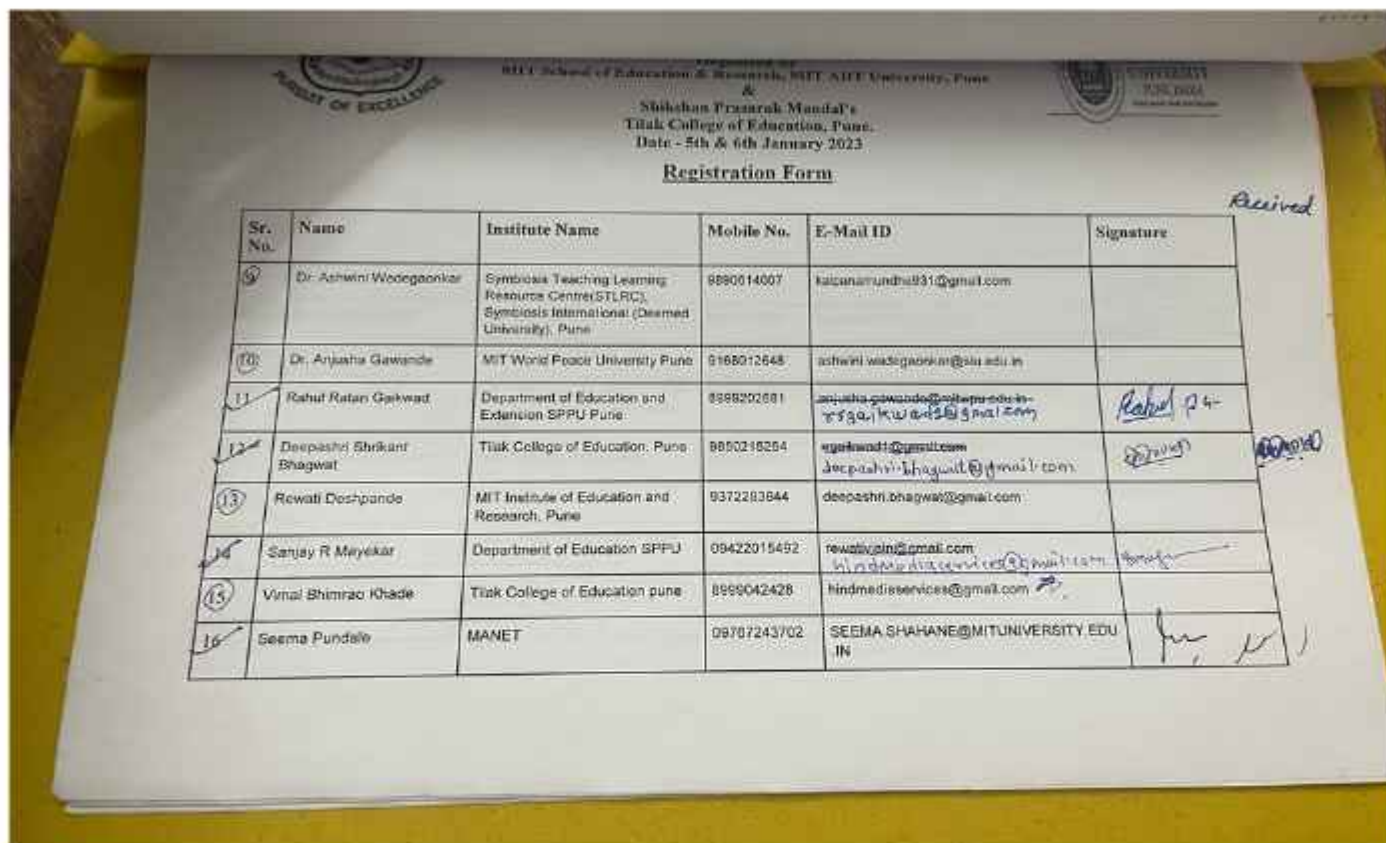 PURSUIT OF EXCELLENCE
MIT School of Education & Research, MIT ADT University, Pune
&
Shikshan Prasarak Mandal's
Tilak College of Education, Pune.
Date - 5th & 6th January 2023
UNIVERSITY
PUNE, INDIA
Registration Form
Received
Sr. No. Name Institute Name Mobile No. E-Mail ID Signature
9 Dr. Ashwini Wadegaonkar Symbiosis Teaching Learning 9890614007 kalpanamundhe931@gmail.com
Resource Centre(STLRC),
Symbiosis International (Deemed
University), Pune
10 Dr. Anjusha Gawande MIT World Peace University Pune 9168012648 ashwini.wadegaonkar@siu.edu.in
11 Rahul Ratan Gaikwad Department of Education and 8999202681 anjusha.gawande@mitwpu.edu.in
Extension SPPU Pune rsgaikwad1@gmail.com Rahul
12 Deepashri Shrikant Tilak College of Education, Pune 9850218254
Bhagwat deepashri.bhagwat@gmail.com
13 Rewati Deshpande MIT Institute of Education and 9372293644 deepashri.bhagwat@gmail.com
Research, Pune
14 Sanjay R Mayekar Department of Education SPPU 09422015492 rewativjoin@gmail.com
hindmediaservices@gmail.com
15 Vimal Bhimrao Khade Tilak College of Education pune 8999042428 hindmediaservices@gmail.com
16 Seema Pundale MANET 09767243702 SEEMA.SHAHANE@MITUNIVERSITY.EDU
.IN